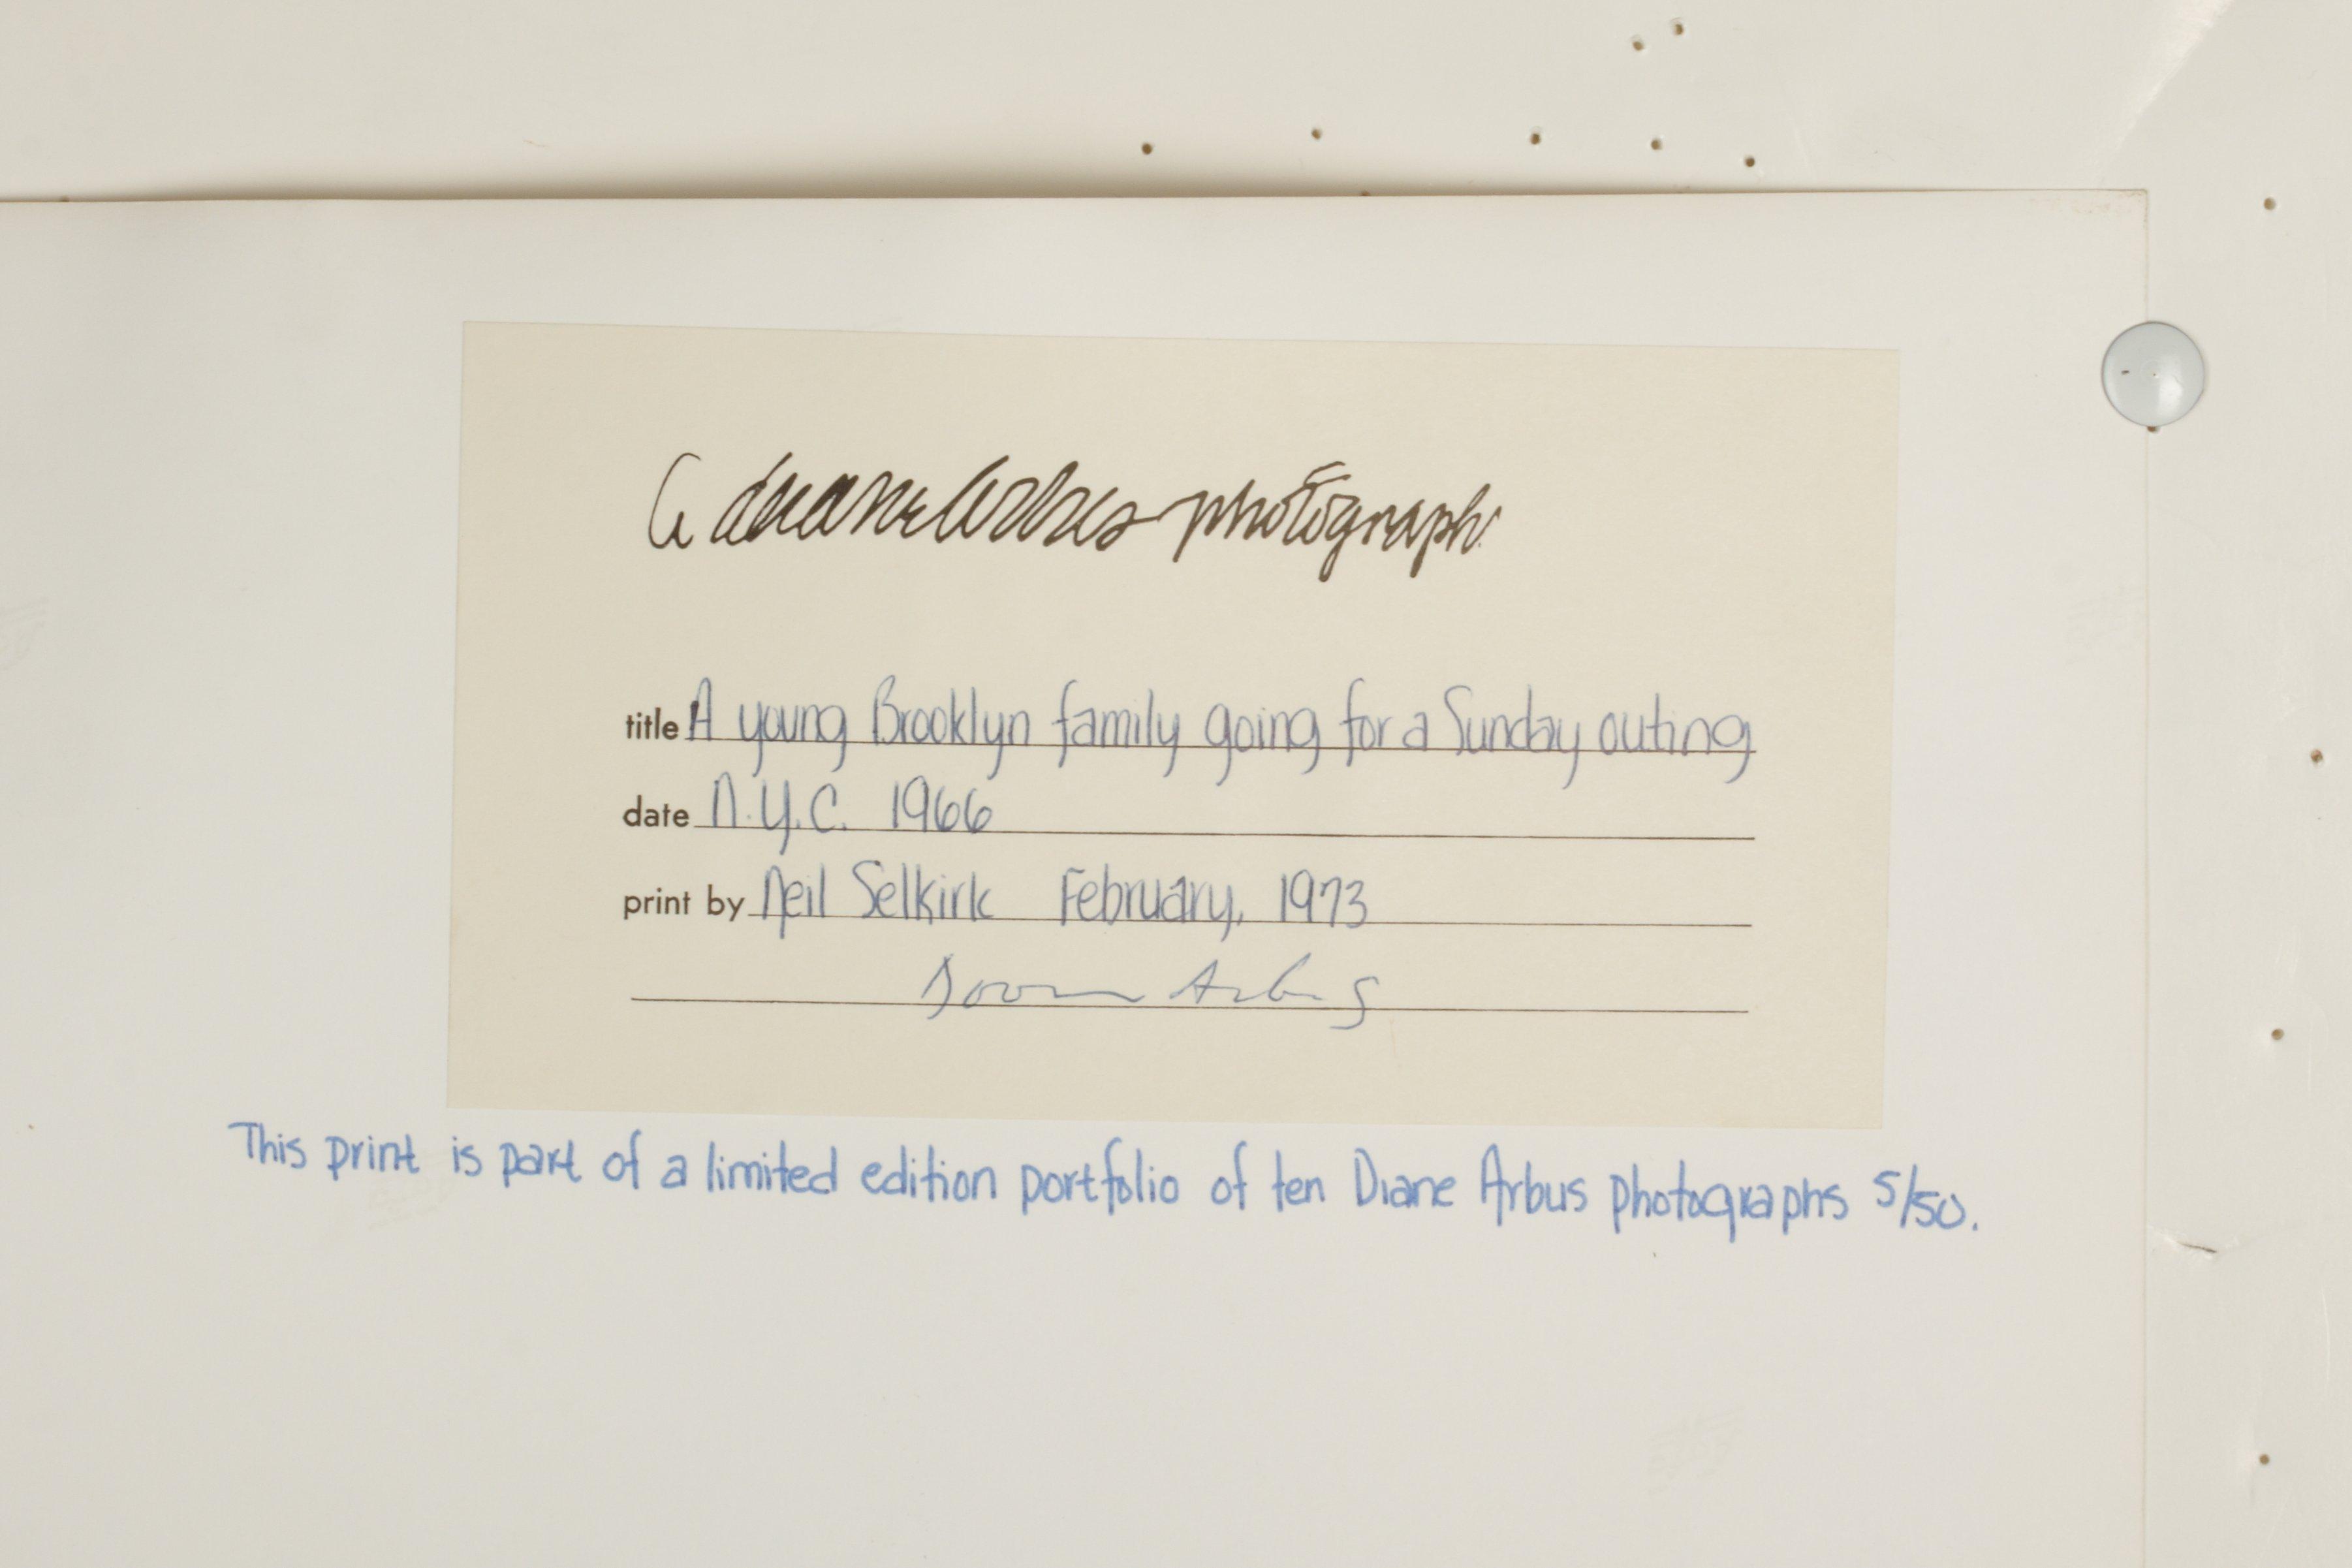 a diane arbus photograph.
title A young Brooklyn family going for a Sunday outing
date N.Y.C. 1966
print by Neil Selkirk February, 1973
Doon Arbus
This print is part of a limited edition portfolio of ten Diane Arbus photographs 5/50.